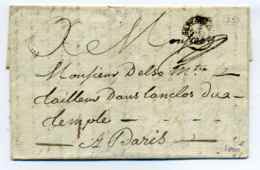 A Monsieur
Monsieur Delso Mtre
tailleur dans lanclos du
temple
A Paris